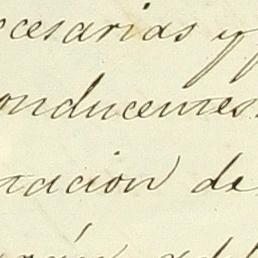 ecesarias y
onducentes
ntacion de